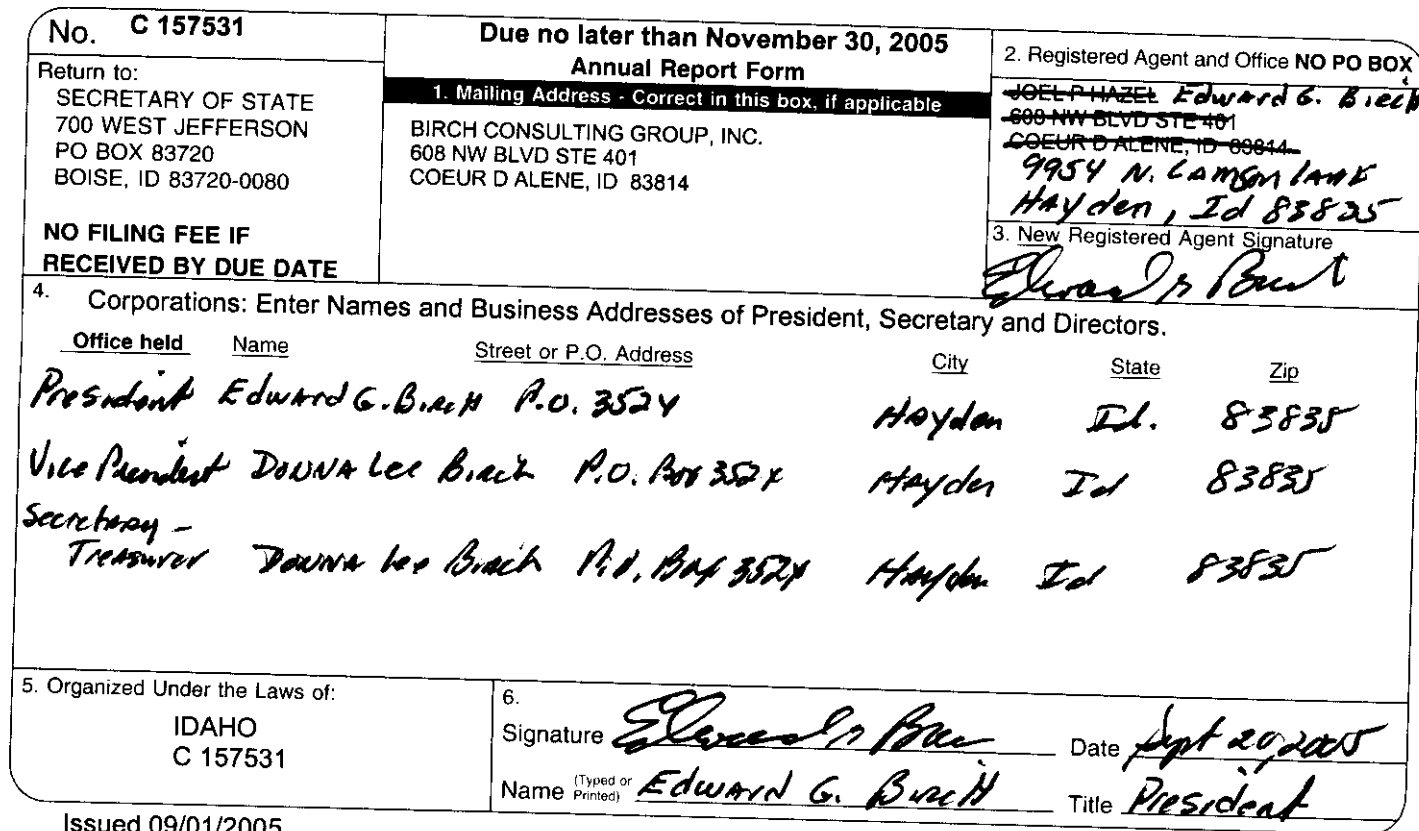 No. C 157531
Return to:
SECRETARY OF STATE
700 WEST JEFFERSON
PO BOX 83720
BOISE, ID 83720-0080
NO FILING FEE IF
RECEIVED BY DUE DATE
Due no later than November 30, 2005
Annual Report Form
1. Mailing Address - Correct in this box, if applicable
BIRCH CONSULTING GROUP, INC.
608 NW BLVD STE 401
COEUR D ALENE, ID 83814
2. Registered Agent and Office NO PO BOX
JOEL P HAZEL Edward G. Birch
608 NW BLVD STE 401
COEUR D ALENE, ID 83814
9954 N. Lamson Lane
Hayden, Id 83835
3. New Registered Agent Signature
4. Corporations: Enter Names and Business Addresses of President, Secretary and Directors.
Office held Name Street or P.O. Address City State Zip
President Edward G. Birch P.O. 3524 Hayden Id. 83835
Vice President Donna Lee Birch P.O. Box 3524 Hayden Id 83835
Secretary -
Treasurer Donna Lee Birch P.O. Box 3524 Hayden Id 83835
5. Organized Under the Laws of:
IDAHO
C 157531
6.
Signature Date Sept 20, 2005
Name (Typed or Printed) Edward G. Birch Title President
Issued 09/01/2005